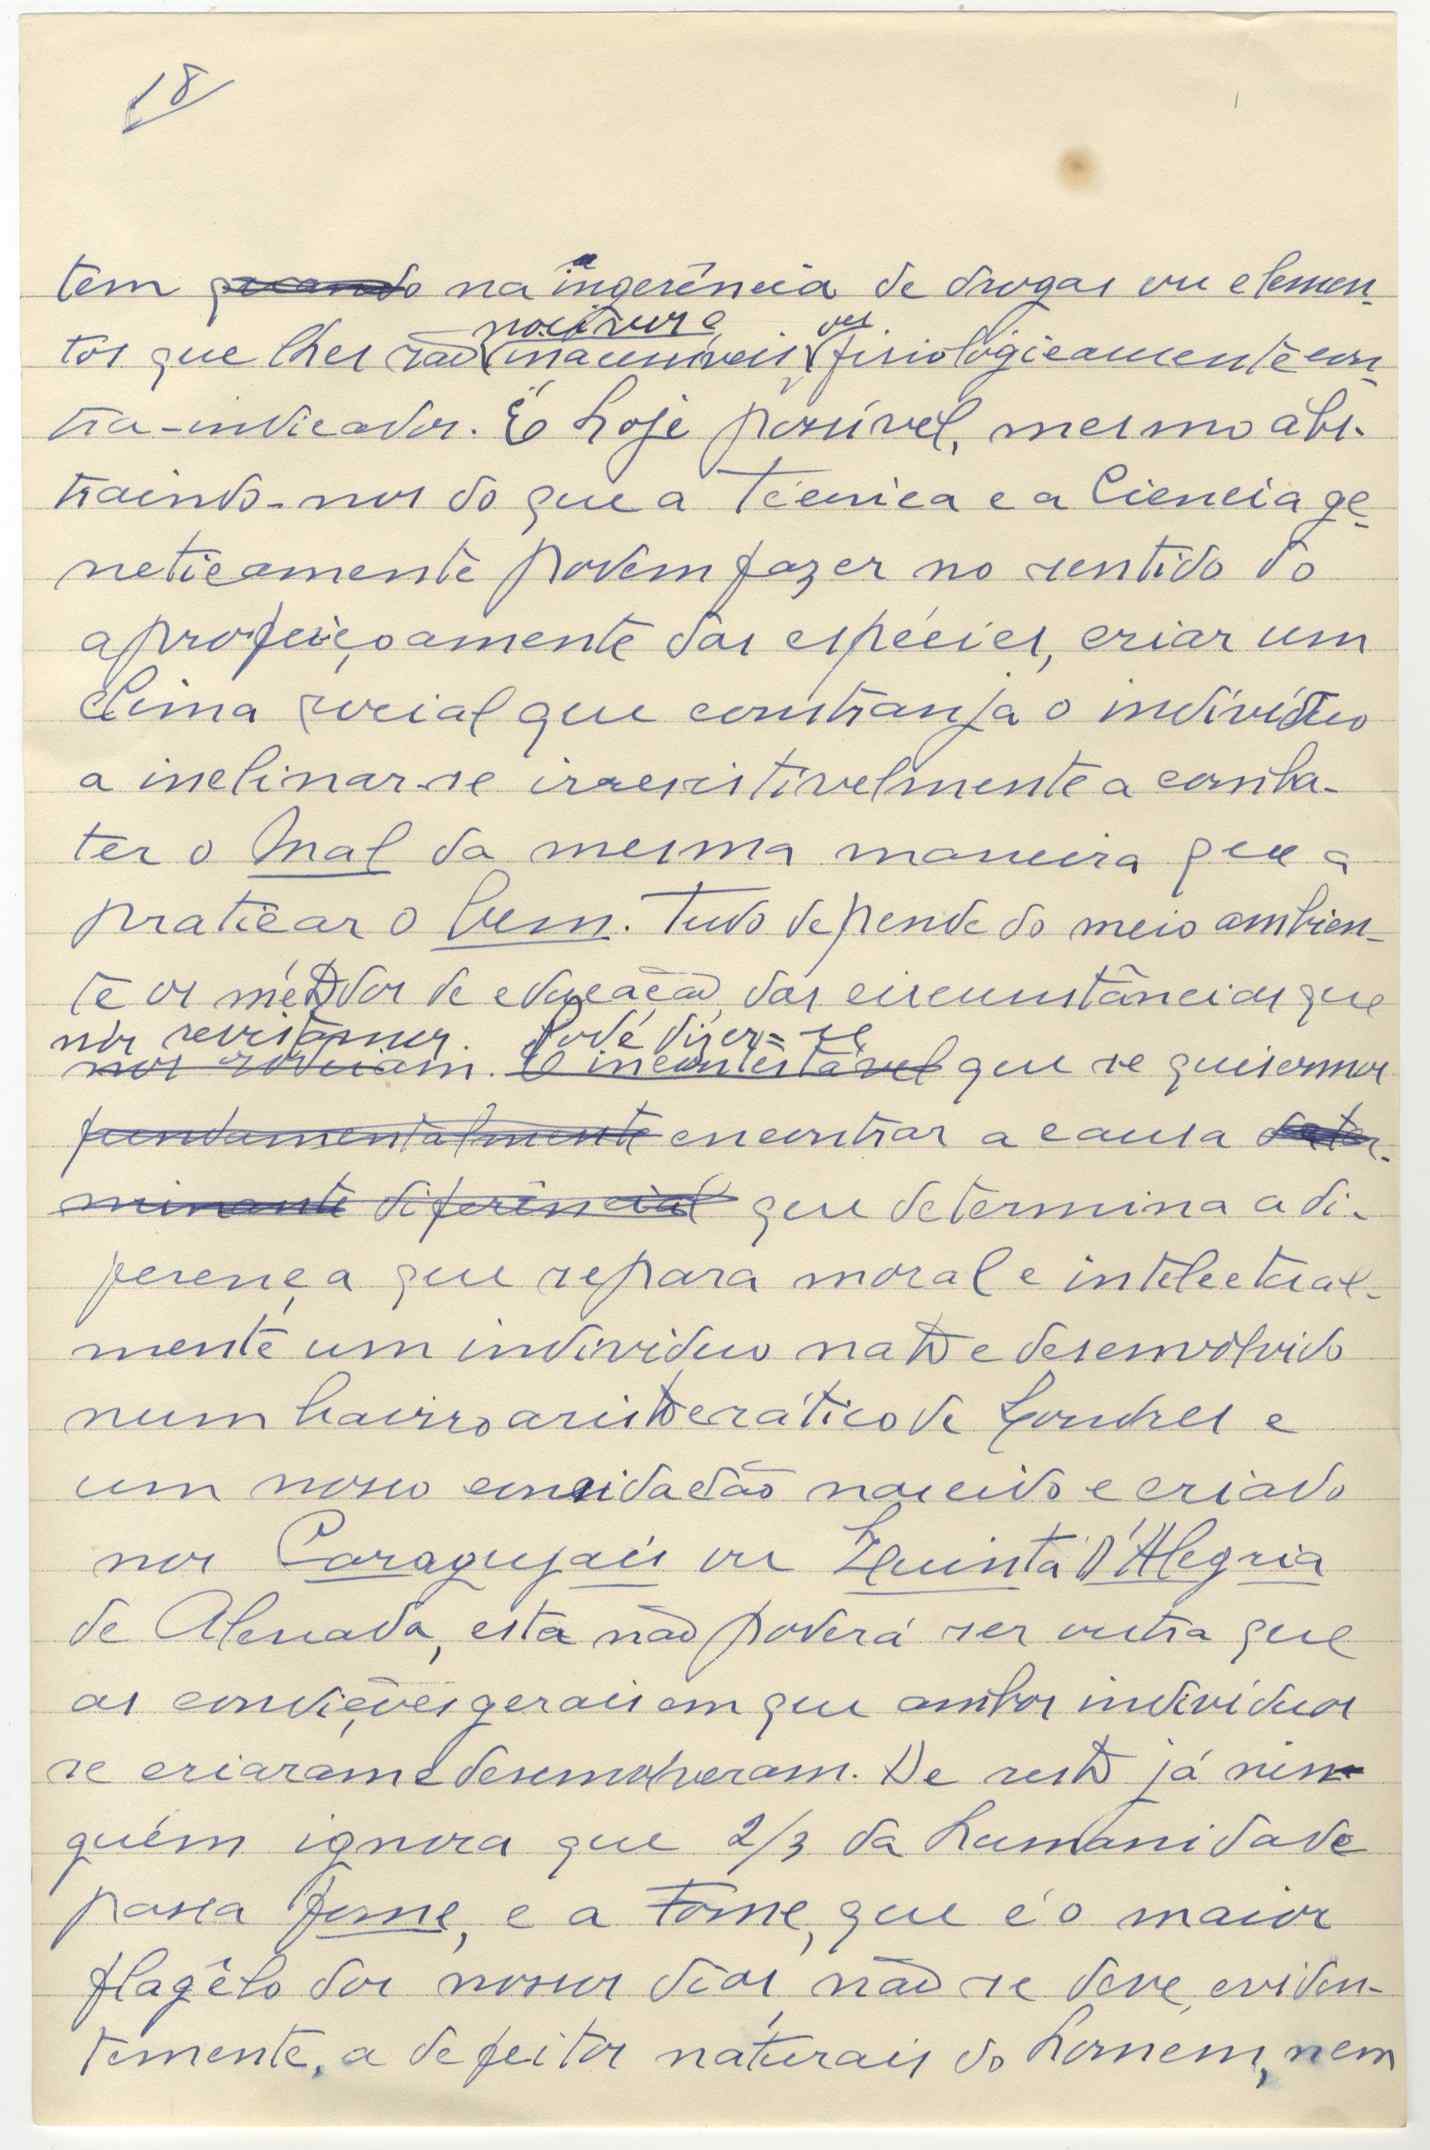 18
tem quando na ingerência de drogas ou elemen-
nocivos e ou
tos que lhes são fisiológicamente con-
tra-indicados. É hoje possível, mesmo abs-
traindo-nos do que a Técnica e a Ciencia ge-
neticamente podem fazer no sentido do
aprofeiçoamente das espécies, criar um
clima social que constranja o indivíduo
a inclinar-se irresistivelmente a comba-
ter o Mal da mesma maneira que a
praticar o bem. Tudo depende do meio ambien-
te os métodos de educação, das circunstâncias que
nós revistamos. Pode dizer-se
nos rodeiam. É incontestável que se quisermos
fundamentalmente encontrar a causa deter-
minante diferêncial que determina a di-
ferença que separa moral e intelectual-
mente um individuo nato e desenvolvido
num bairro aristocrático de Londres e
um nosso concidadão nascido e criado
nos Caragujais ou Quinta D'Alegria
de Almada, esta não poderá ser outra que
as condições gerais em que ambos indivíduos
se criaram e desenvolveram. De resto já nin-
guém ignora que 2/3 da humanidade
passa fome, e a Fome, que é o maior
flagêlo dos nossos dias, não se deve, eviden-
temente, a defeitos naturais do homem, nem